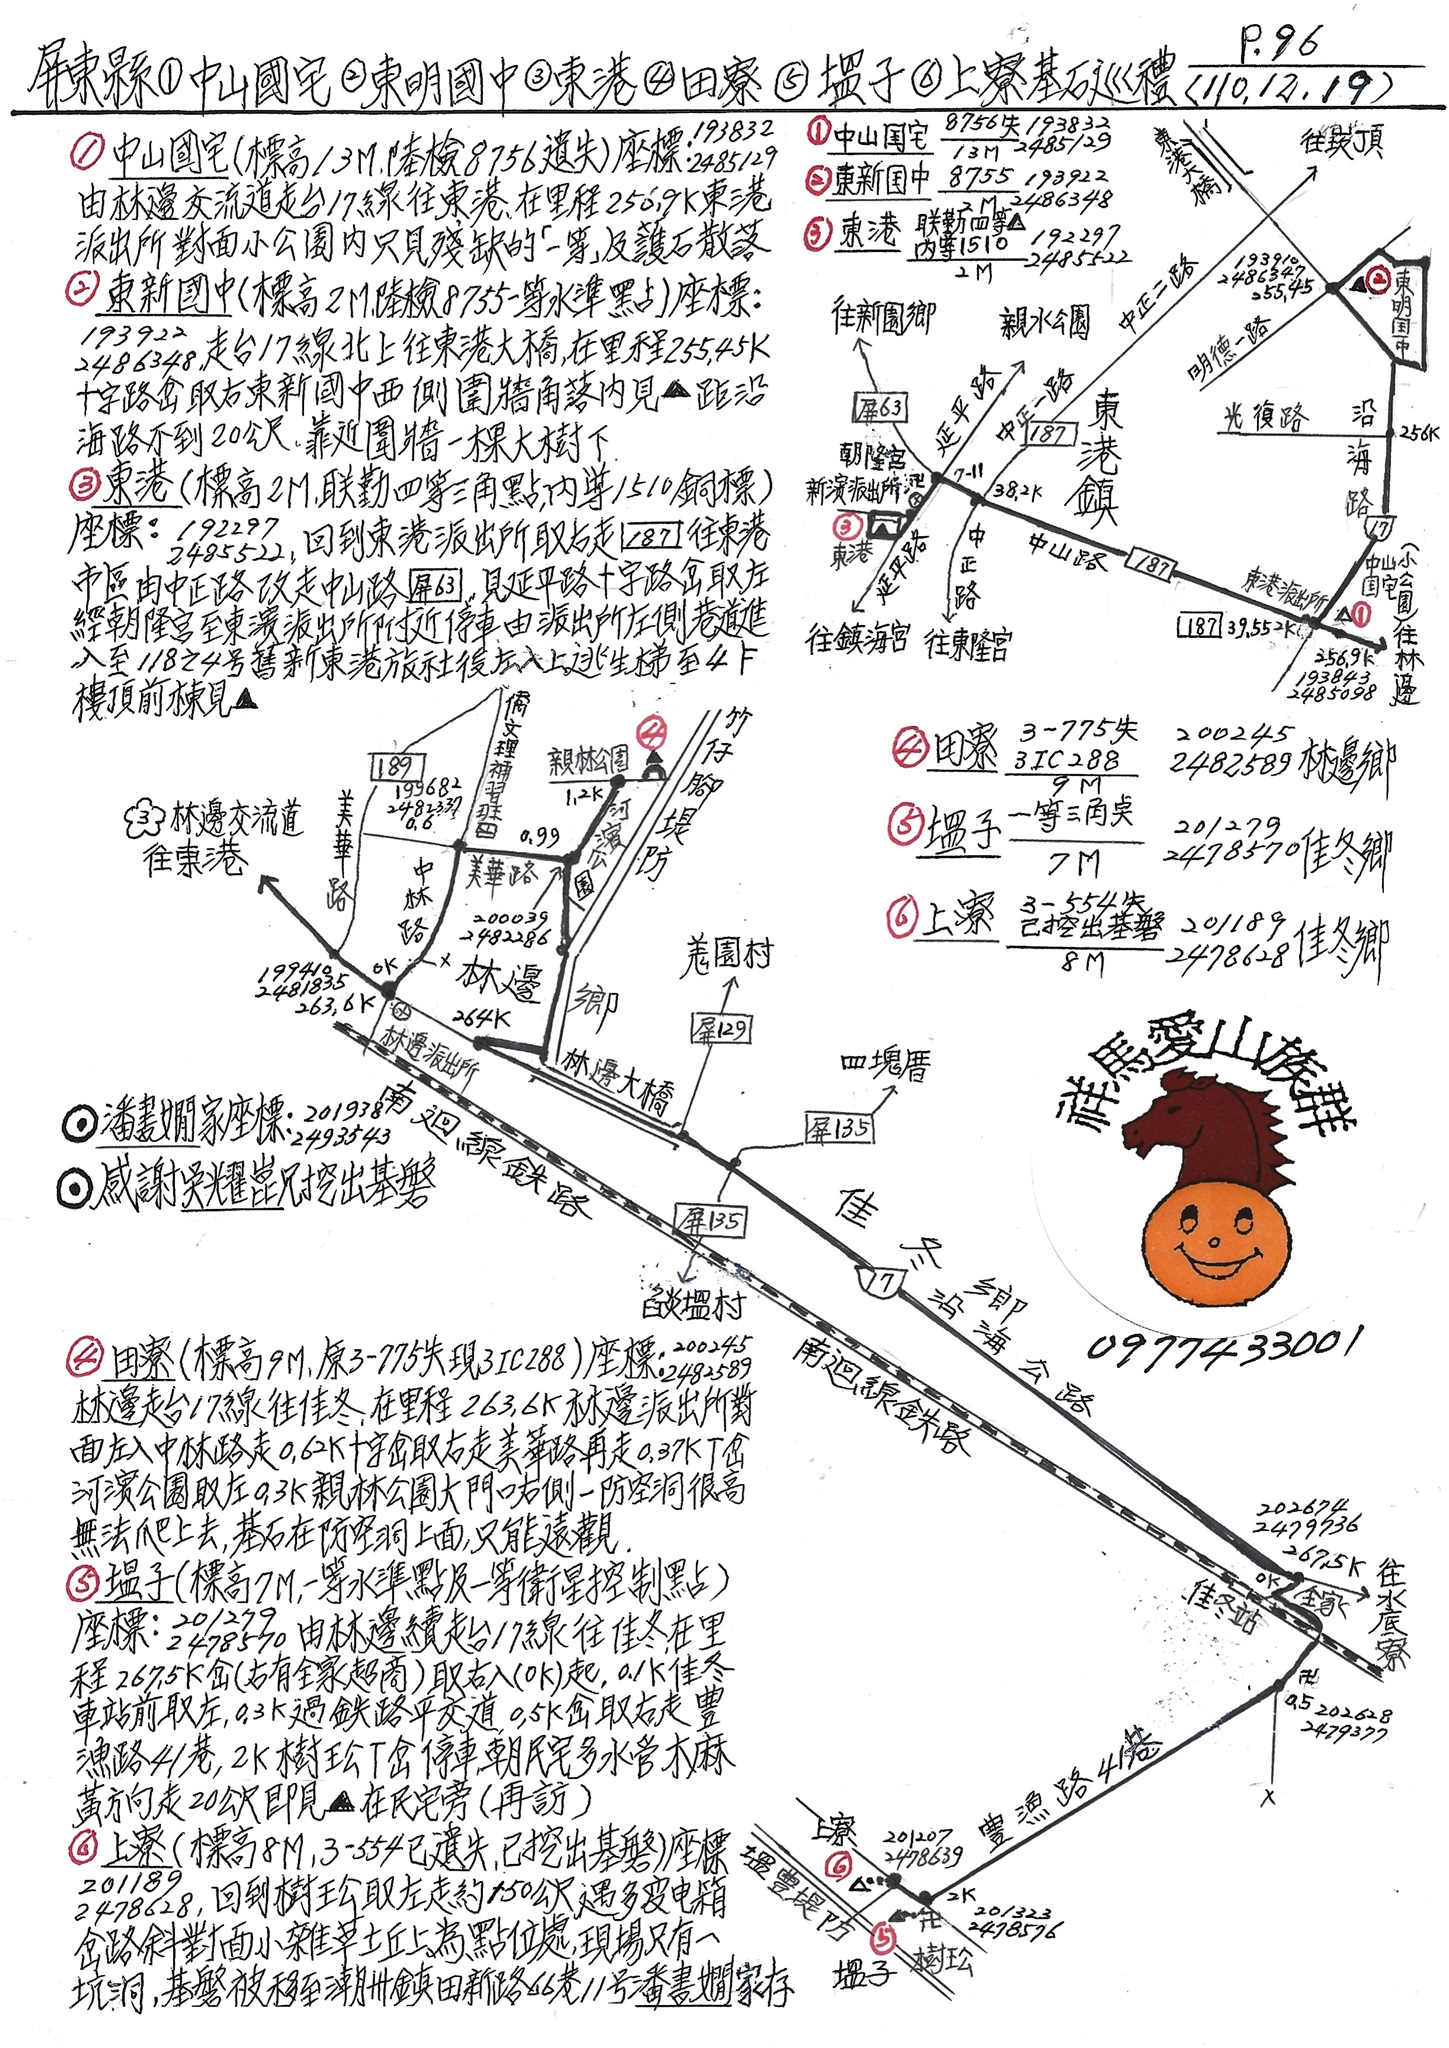 P.96
屏東縣①中山國宅②東明國中③東港④田寮⑤塭子⑥上寮基石巡禮(110.12.19)
①中山國宅(標高13M,陸檢8756遺失)座標:193832
2485129
由林邊交流道走台17線往東港,在里程256.9K東港
派出所對面小公園內只見殘缺的「一等」及護石散落
②東新國中(標高2M.陸檢8755一等水準點)座標:
193922
2486348,走台17線北上往東港大橋,在里程255.45K
十字路岔取右東新國中西側圍牆角落內見▲距沿
海路不到20公尺.靠近圍牆一棵大樹下.
③東港(標高2M,联勤四等三角點,內等1510銅標)
座標:192297
2485522,回到東港派出所取右走187往東港
市區由中正路改走中山路屏63,見延平路十字路岔取左
經朝隆宮至東濱派出所附近停車由派出所左側巷道進
入至118之4號舊新東港旅社後左入上逃生梯至4F
樓頂前棟見▲
①中山国宅 8756失 193832
13M 2485129
②東新国中 8755 193922
2M 2486348
③東港 联勤四等▲
內等1510 192297
2M 2485522
東港大橋
往崁頂
中正二路
193910
2486347
255.45
②
東明国中
明德一路
光復路
沿海路
256K
17
往新園鄉
親水公園
屏63
延平路
中正一路
187
東港鎮
朝隆宮
7-11
新濱派出所
38.2K
③
東港
延平路
中正路
中山路
187
往鎮海宮
往東隆宮
東港派出所
中山国宅
(小公園)
①
187 39.552K
256.9K
193843
2485098
往林邊
④田寮 3-775失 200245
3IC288 2482589 林邊鄉
9M
⑤塭子 一等三角點 201279
7M 2478570 佳冬鄉
⑥上寮 3-554失
已挖出基磐 201189
8M 2478628 佳冬鄉
僑文理補習班
④
竹仔腳堤防
親林公園
1.2K
189
199682
2482337
0.6
河濱公園
0.99
③林邊交流道
往東港
美華路
中林路
美華路
200039
2482286
0K
X
林邊鄉
199410
2481835
263.6K
264K
林邊派出所
羗園村
屏129
林邊大橋
四塊厝
屏135
南迴線鉄路
◎潘書嫺家座標:201938
2493543
◎感謝吳耀崑兄挖出基磐
屏135
塭村
佳冬鄉
17
沿海公路
南迴線鉄路
祥馬愛山族群
0977433001
④田寮(標高9M,原3-775失現3IC288)座標:200245
2482589
林邊走台17線往佳冬,在里程263.6K林邊派出所對
面左入中林路走0.62K十字岔取右走美華路再走0.37K丁岔
河濱公園取左0.3K親林公園大門口右側一防空洞很高
無法爬上去,基石在防空洞上面,只能遠觀.
⑤塭子(標高7M,一等水準點及一等衛星控制點)
座標:201279
2478570 由林邊續走台17線往佳冬,在里
程267.5K岔(右有全家超商)取右入(0K)起,0.1K佳冬
車站前取左,0.3K過鉄路平交道,0.5K岔取右走豐
漁路41巷,2K樹王公丁岔停車,朝民宅多水管木麻
黃方向走20公尺即見▲在民宅旁(再訪)
⑥上寮(標高8M,3-554已遺失,已挖出基磐)座標
201189
2478628,回到樹王公取左走約150公尺遇多变电箱
岔路斜對面小雜草土丘上為點位處,現場只有一
坑洞,基磐被移至潮州鎮田新路66巷11号潘書嫺家存
202674
2479736
267.5K
0K
全家
佳冬站
往水底寮
卍
0.5 202628
2479377
X
豐漁路41巷
上寮
⑥
201207
2478639
塭豐堤防
2K
201323
2478576
⑤
卍
樹王公
塭子